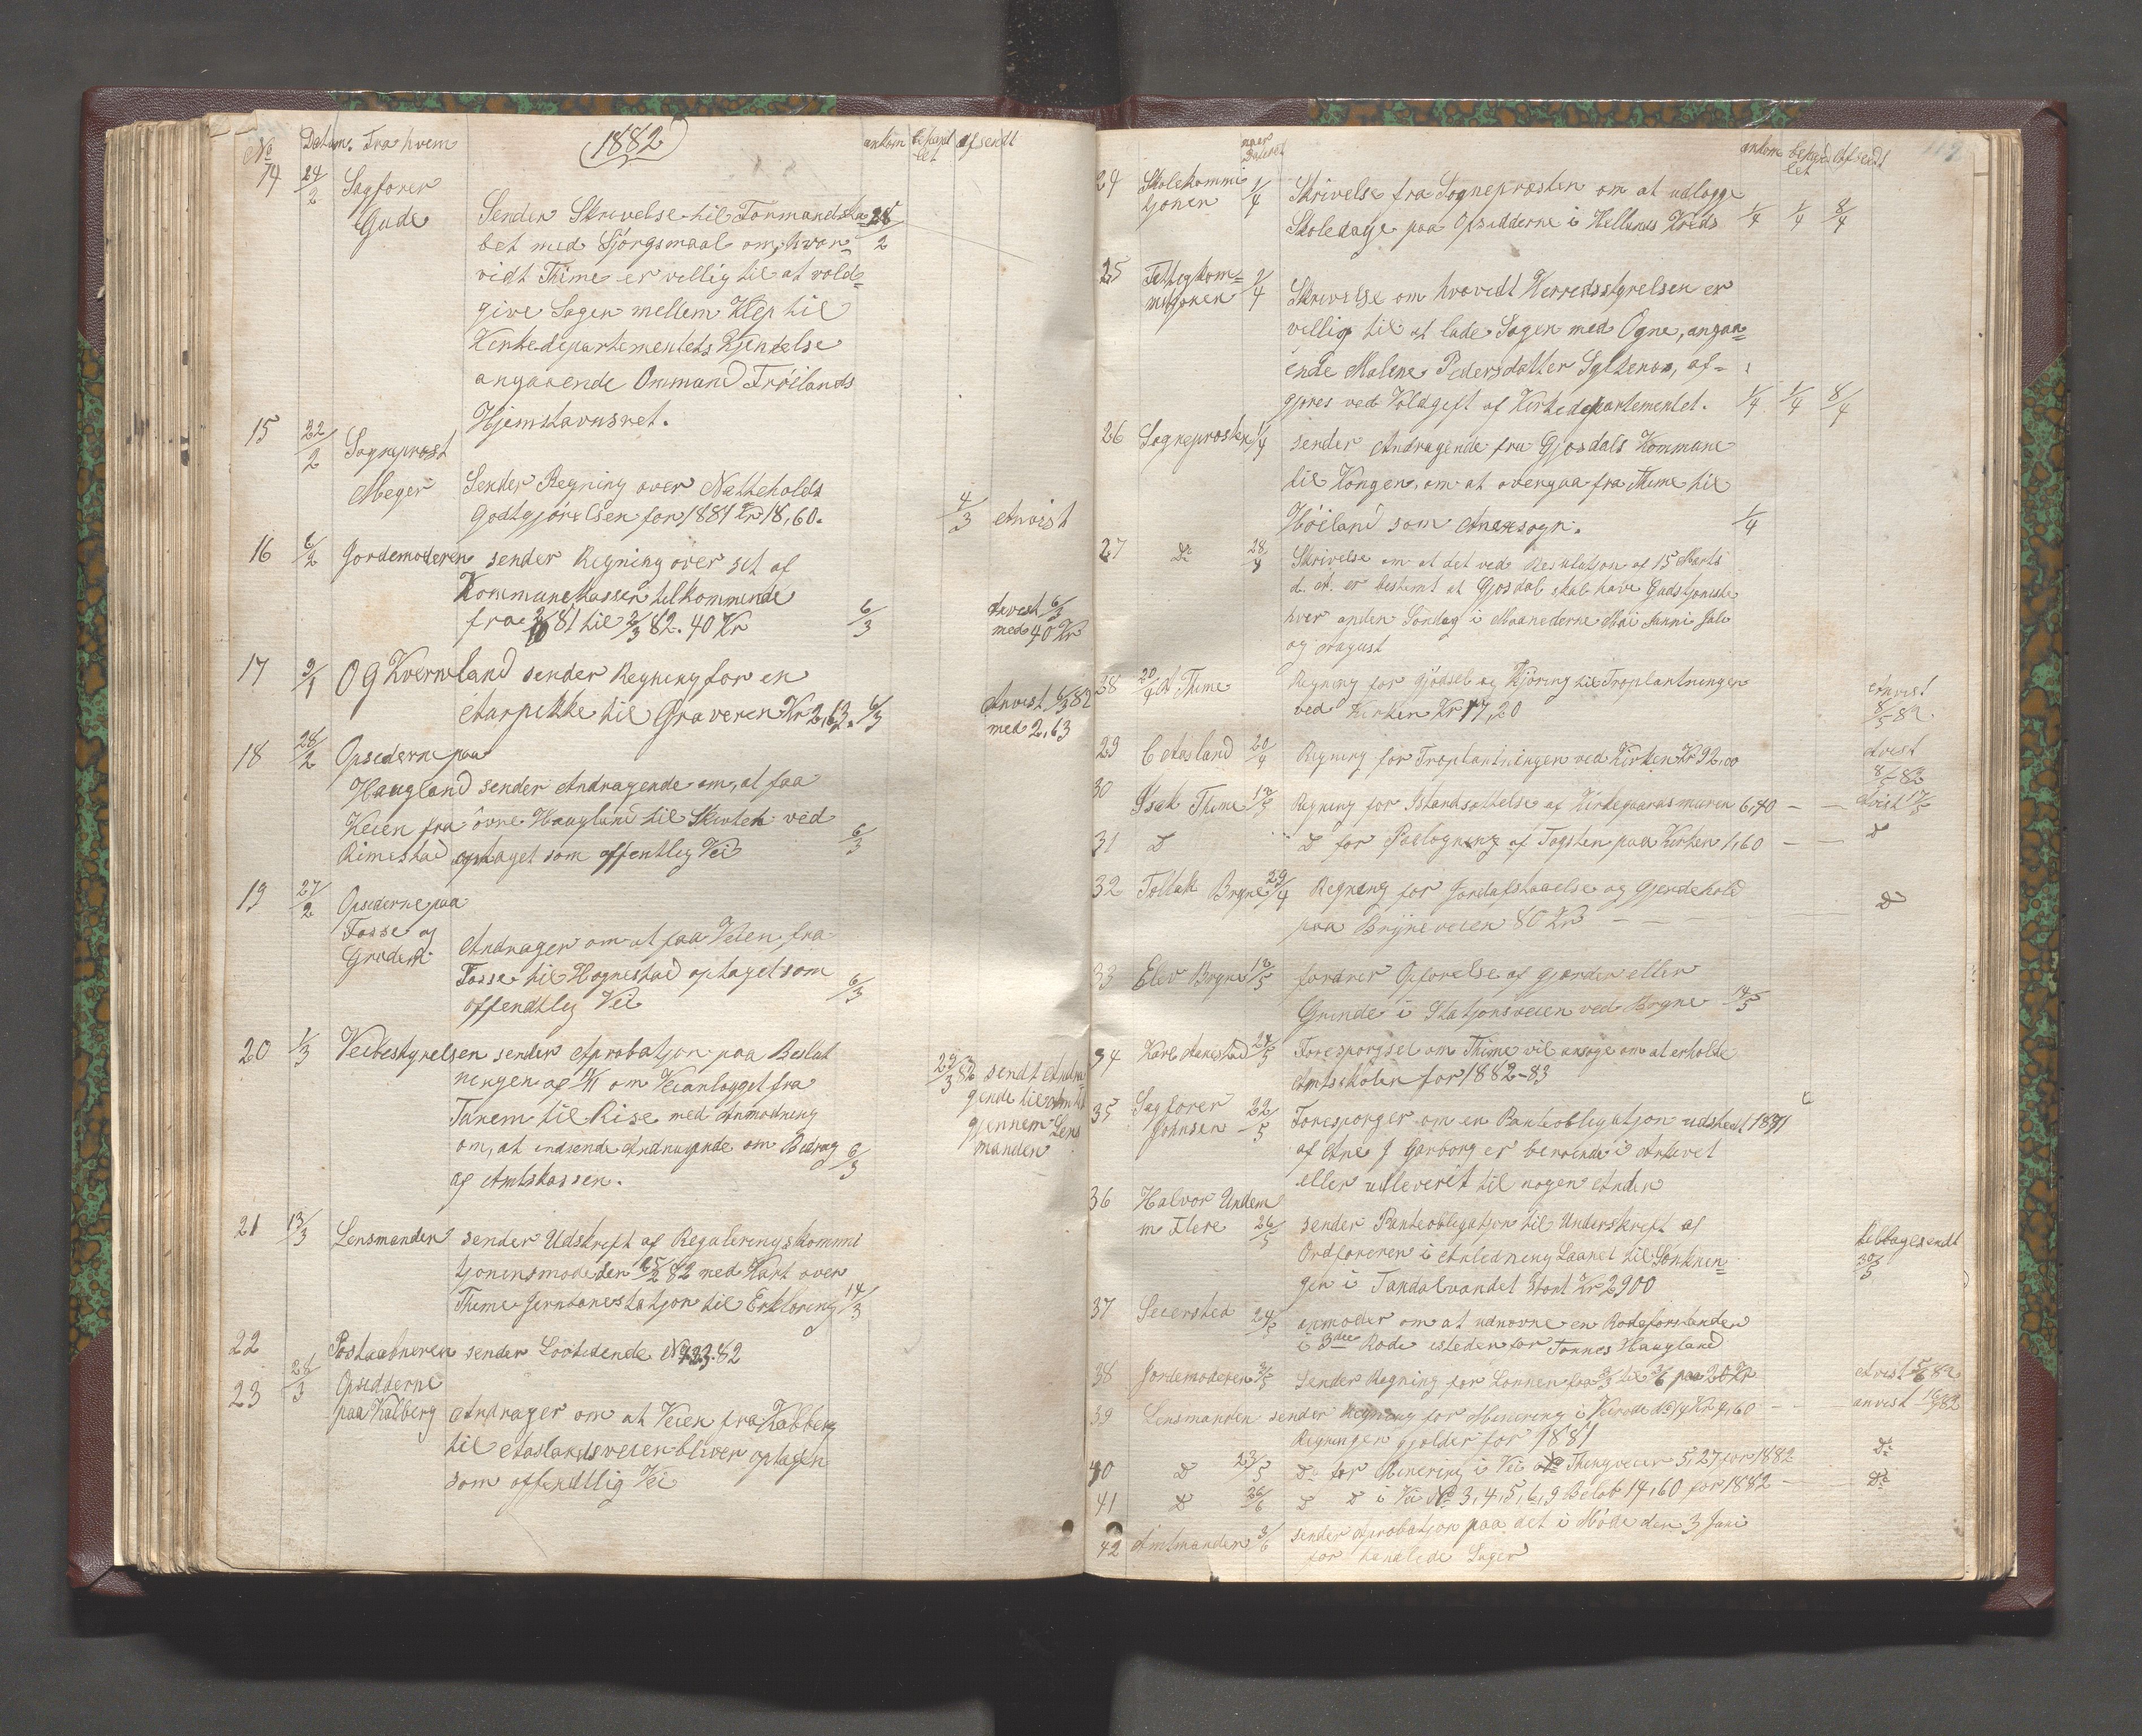 No Datum. Fra hvem 1882 ankom behand let afsendt
14 24/2 Sagfører
Gude Sender Skrivelse til Formandska= 28/2
bet med Spörgsmaal om, hvor=
vidt Thime er villig til at vold=
give Sagen mellem Klep til
Kirkedepartementets Kjendelse
angaaende Ommund Tröilands
Hjemstavnsret.
15 22/2 Sogneprest
Meyer Sender Regning over Natteholds
Godtgjörelsen for 1881 Kr 18,60. 4/3 Anvist
16 6/2 Jordemoderen sender Regning over sit af
Kommunekassen tilkommende
fra 2/10 81 til 2/3 82. 40 Kr 6/3 Anvist 6/3
med 40 Kr
17 9/1 O G Kverneland sender Regning for en
Harpikke til Graveren Kr 2,63. 6/3 Anvist 6/3 82
med 2,63
18 28/2 Opsiderne paa
Haugland sender Andragende om, at faa
Veien fra övre Haugland til Skiulen ved
Rimestad optaget som offentlig Vei 6/3
19 27/2 Opsiderne paa
Fosse og
Grødem Andrager om at faa Veien fra
Fosse til Hognestad optaget som
offendtlig Vei 6/3
20 1/3 Veibestyrelsen sender Aprobatjon paa Beslut
ningen af om Veianlægget fra 29/3 82 sendt Andra
Tunem til Rise med Anmodning gende til Amtet
om, at indsende Andragende om Bidrag 6/3 gjennem Lens
af Amtskassen. manden
21 13/3 Lensmanden sender Udskrift af Reguleringskommi
tjonensmöde den 25/2 82 med Kart over
Thime Jernbanestatjon til Erklæring 14/3
22 Postaabneren sender Lovtidende No 1 2 3 82
23 28/3 Opsidderne
paa Kalberg Andrager om at Veien fra Kalberg
til Aaslandsveien bliver optagen
som offendtlig Vei
naar Dateret ankom behand let Afsendt
24 Skolekommi 1/4 Skrivelse fra Sognepræsten om at udlægge
tjonen Skoledage paa Opsidderne i Hellands Kreds 1/4 1/4 8/4
25 Fattigkom= 2/4
misjonen Skrivelse om hvorvidt Herredsstyrelsen er
villig til at lade Sagen med Ogne, angaa=
ende Malene Pedersdatter Syltenæs, af=
gjøres ved Voldgift af Kirkedepartementet. 1/4 1/4 8/4
26 Sognepræsten 1/4 sender Andragende fra Gjesdals Kommune
til Kongen, om at overgaa fra Thime til
Höiland som Anexsogn. 1/4
27 Do 28/4 Skrivelse om at det ved Resulution af 15 Marts
d. A. er bestemt at Gjesdal skal have Gudstjeneste
hver anden Söndag i Maanederne Mai Junni Juli
og August
28 20/4 A Thime Regning for Gjödsel og Kjöring til Træplantningen
ved Kirken Kr 17,20 Anvist 8/5 82
29 C Aasland 20/4 Regning for Træplantningen ved Kirken Kr 92,00 Avist 8/5 82
30 Isak Thime 12/5 Regning for Istandsættelse af Kirkegaardsmuren 6,40 — — Avist 17/5
31 D " D for Paalægning af Tagsten paa Kirken 1,60 — — D
32 Tollak Bryne 29/4 Regning for Jordafstaaelse og Gjerdehold
paa Bryneveien 80 Kr — — — D
33 Elev Bryne 12/5 fordrer Opførelse af Gjerder eller
Grinde i Statjonsveien ved Bryne 14/5
34 Karl Aanestad 24/5 Forespørgsel om Thime vil ansøge om at erholde
Amtsskolen for 1882–83
35 Sagfører 22/5 Forespørger om en Panteobligatjon udstedt 1871
Johnsen af Ane J Garborg er beroende i Arkivet
eller udleverit til nogen Anden
36 Halvor Undem
m Flere 26/5 sender Panteobligatjon til Underskrift af
Ordføreren i Anledning Laanet til Sænknin= tilbagesendt
gen i Tandalvandet Stort Kr 2900 30/5
37 Seiersted 24/5 anmoder om at udnævne en Rodeforstander
i 3die Rode isteden for Tønnes Haugland
38 Jordemoderen 3/5 Sender Regning for Lønnen fra 3/3 til 3/6 paa 20 Kr Avist 5/6 82
39 Lensmanden sender Regning for Minering i Veirode No 19 Kr 9,60 — — anvist 16/6 82
Regningen gjælder for 1881
40 D 23/5 Do for Minering i Vei No Thingveier 5,27 for 1882 Do
41 D 26/6 D D i Vei No 3,4,5,6,9 Beløb 14,60 for 1882 — Do
42 Amtmanden 3/6 sender Aprobatjon paa det i Møde den 3 Juni
for handlede Sager